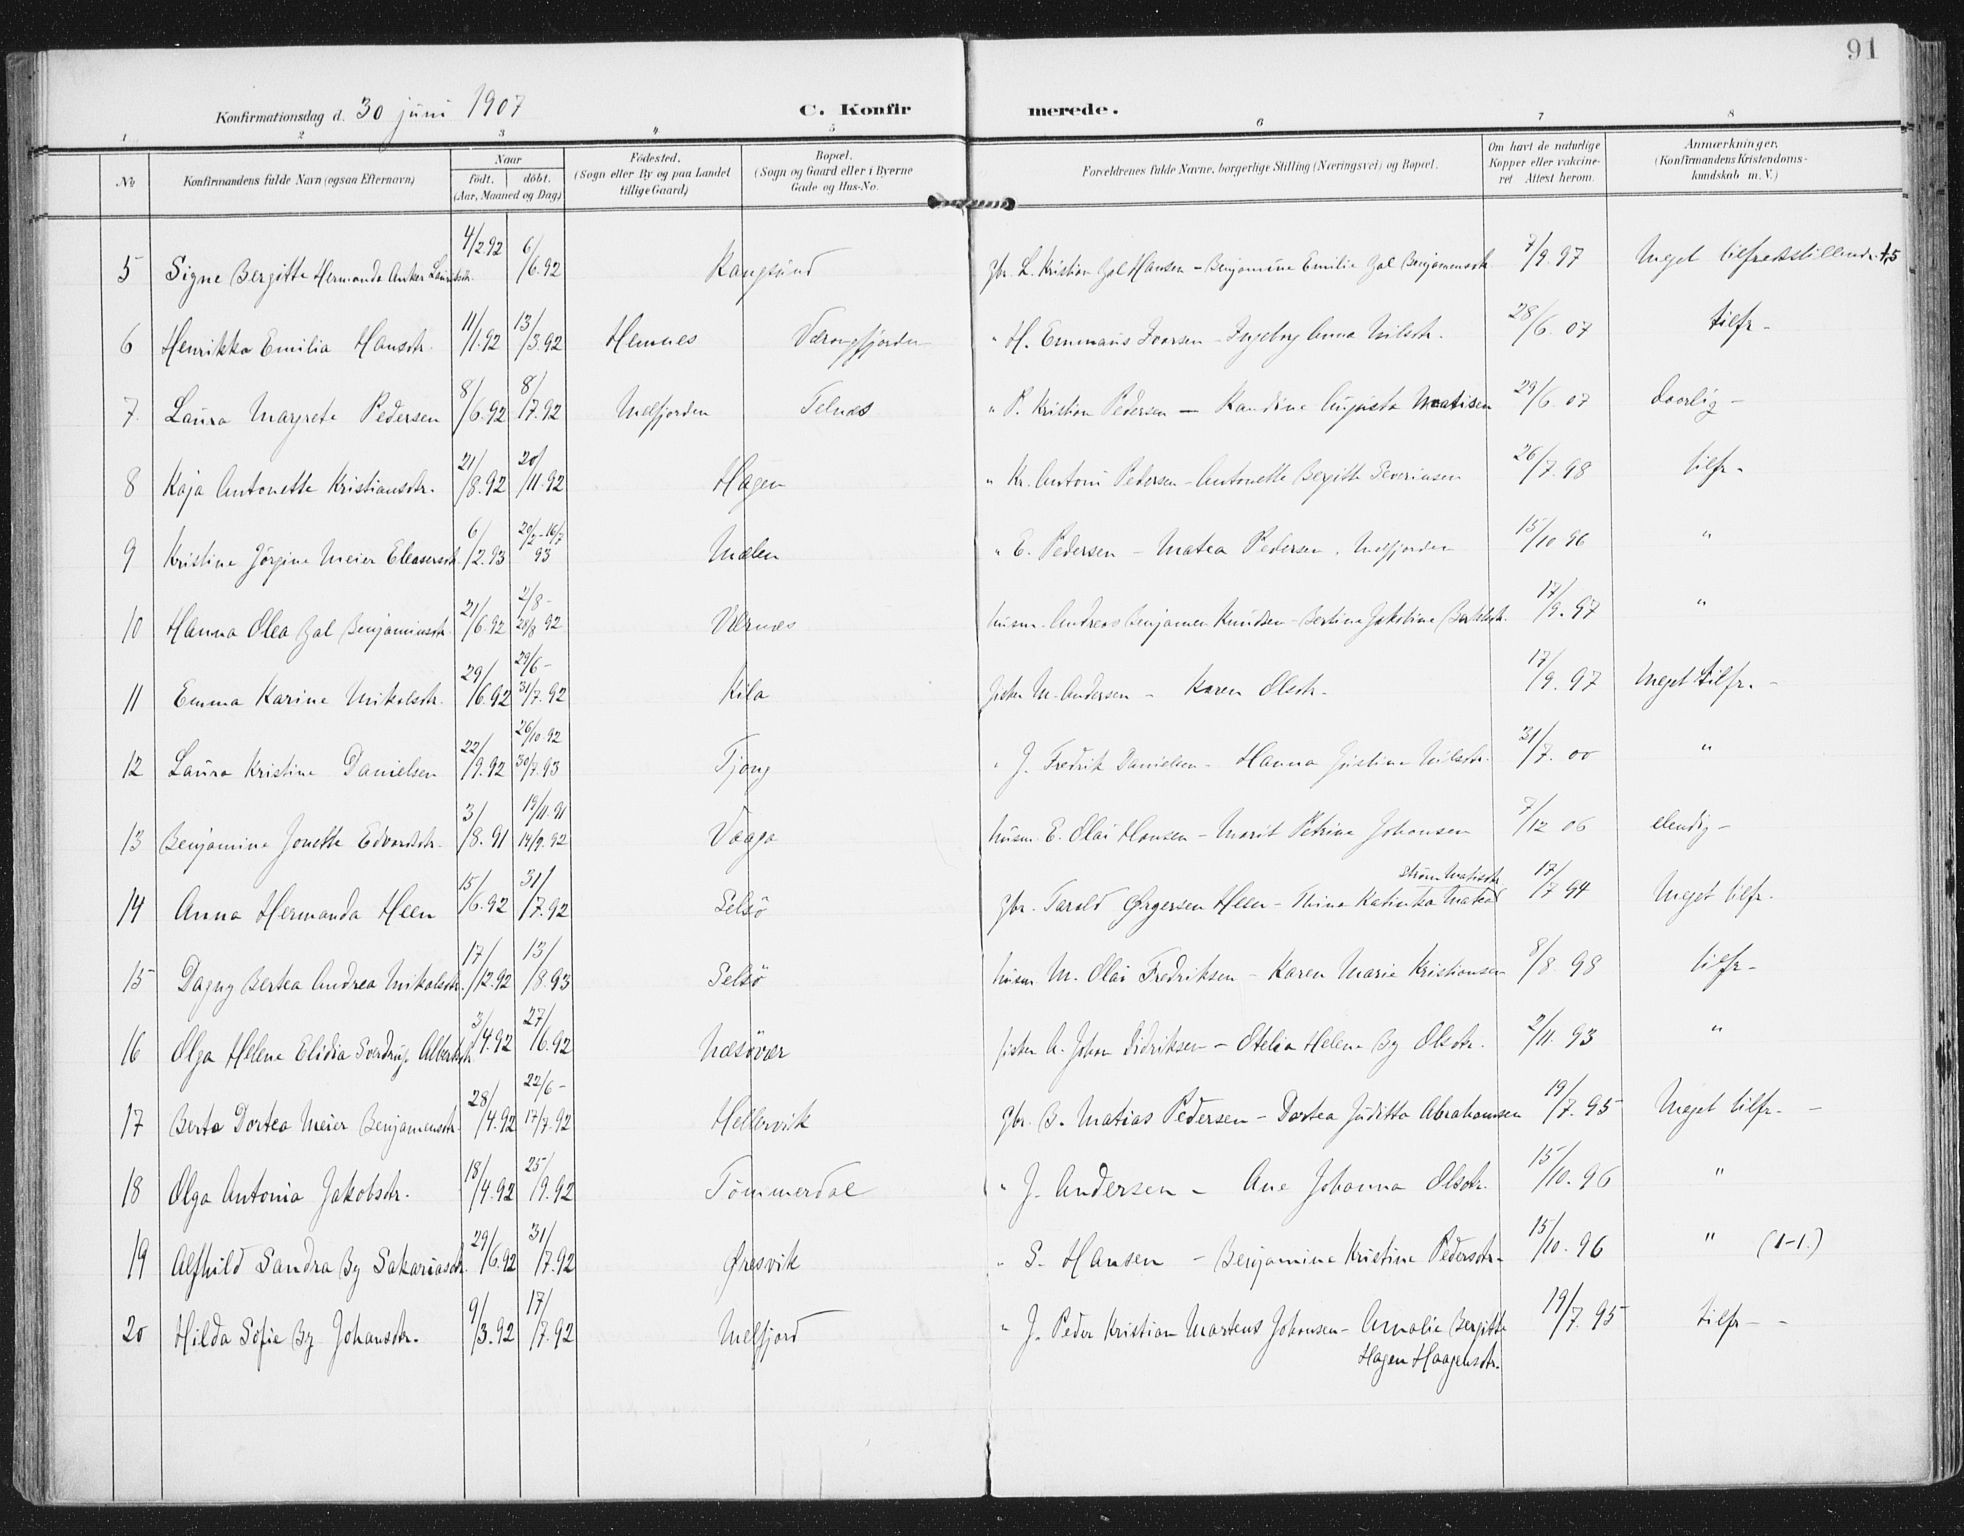 91
Konfirmationsdag d. 30 juni 1907 C. Konfirmerede.
1 2 3 4 5 6 7 8
No Konfirmandens fulde Navn (ogsaa Efternavn) Naar født. døbt. (Aar, Maaned og Dag) Fødested. (Sogn eller By og paa Landet tillige Gaard) Bopæl. (Sogn og Gaard eller i Byerne Gade og Hus-No. Forældrenes fulde Navne, borgerlige Stilling (Næringsvei) og Bopæl. Om havt de naturlige Kopper eller vakcineret Attest herom. Anmærkninger, (Konfirmandens Kristendomskundskab m. V.)
5 Signe Bergitte Hermanda Anker 4/2.92 6/6.92 Rangsund gbr. L. Kristian Zal Hansen - Benjamine Emilie Zal Benjaminsdtr. 7/9.97 Meget tilfredsstillende 1,5
6 Henrikka Emilia Hansdtr. 11/1.92 13/3.92 Hemnes Værangfjorden " H. Emmaus Ivarsen - Ingeborg Anna Nilsdtr. 28/6.07 tilfr-
7. Laura Margrete Pedersen 8/6.92 8/7.92 Melfjorden Telnes " P. Kristian Pedersen - Kandine Augusta Matisen 29/6.07 daarlig -
8 Kaja Antonette Kristiansdtr. 21/8.92 20/11.92 Hagen " Kr. Antoni Pedersen - Antonette Bergitte Severinsen 26/7.98 tilfr-
9 Kristine Jørgine Meier Eleasersdtr. 6/2.93 20/2-16/7 93 Mælen " E. Pedersen - Matea Pedersen. Melfjorden 15/10 96 "
10 Hanna Olea Zal Benjaminsdtr. 21/6.92 2/8-28/8 92 Værnes husm. Andreas Benjamin Knudsen - Bertine Jakobine 17/9.97 "
11 Emma Karine Nikolsdtr. 29/6.92 29/6-31/7.92 Kila fisker N. Andersen - Karen Olsdtr. 17/9.97 Meget tilfr. -
12 Laura Kristine Danielsen 22/9.92 26/10.92 30/7.93 Tjong " J. Fredrik Danielsen - Hanna Justine Nilsdtr. 31/7.00 "
13 Benjamine Jonette Edvardsdtr. 3/8.91 19/11.91 14/9.92 Vaaga husm. E. Olai Hansen - Marit Petrine Johansen 7/12 06 elendig -
14 Anna Hermanda Heen 15/6.92 31/7.92 Selsö gbr. Tarald Ørgersen Heen - Thina Katinka Strøm Matisdtr. 17/7 94 Meget tilfr.
15 Dagny Bertea Andrea Nikolsdtr. 17/12.92 13/8.93 Selsö husm N. Olai Fredriksen - Karen Marie Kristiansen 8/8.98 tilfr-
16 Olga Helene Elidia Sverdrup Albertsdtr. 3/4.92 27/6.92 Næsövær fisker A. Johan Didriksen - Otelia Helene By Olsdtr. 2/11.93 "
17 Berta Dortea Meier Benjaminsdtr. 28/4.92 22/6-17/7.92 Hellervik gbr. B. Matias Pedersen - Dortea Juditta Abrahamsen 19/7.95 Meget tilfr. -
18 Olga Antonia Jakobsdtr. 18/4.92 25/9.92 Tømmerdal " J. Andersen - Ane Johanna Olsdtr. 15/10.96 "
19 Alfhild Sandra By Sakariasdtr. 29/6.92 31/7.92 Øresvik " S. Hansen - Benjamine Kristine Pedersdtr. 15/10.96 " (1-1.)
20 Hilda Sofie By Johansdtr. 9/3.92 17/7.92 Melfjord " J. Peder Kristian Martens Johansen - Amalie Bergitte 19/7.95 tilfr - -
Hagen Haagensdtr.